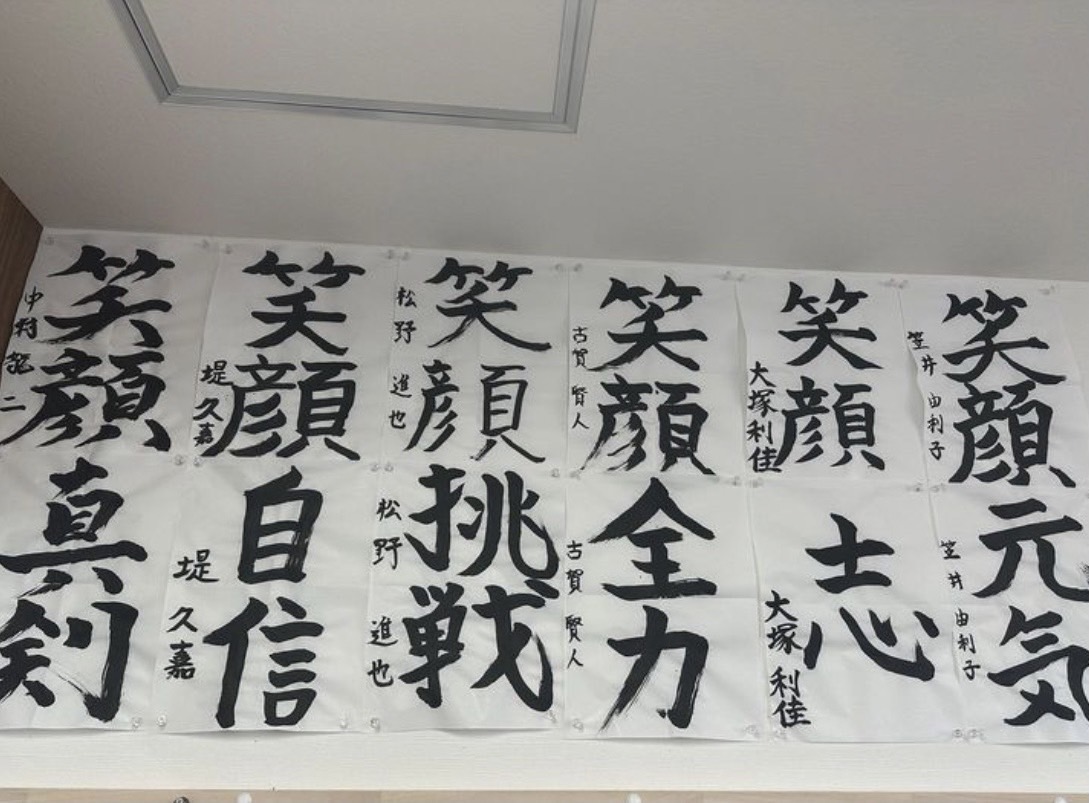 笑顔
中村龍二
笑顔
堤久嘉
笑顔
松野進也
笑顔
古賀賢人
笑顔
大塚利佳
笑顔
笠井由利子
真剣
自信
堤久嘉
挑戦
松野進也
全力
古賀賢人
志
大塚利佳
元気
笠井由利子